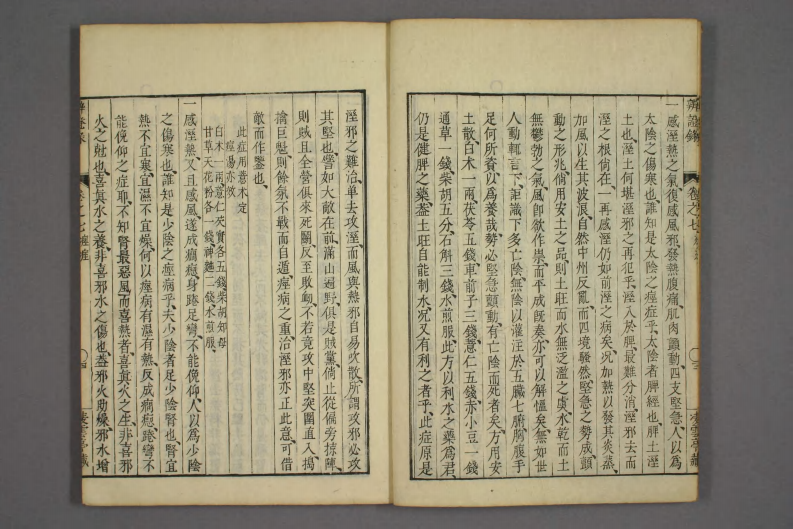 辨證錄
卷之七
一感溼熱之氣復感風邪發熱腹痛肌肉顫動四支堅急人以爲
太陰之傷寒也誰知是太陰之痙症乎太陰者脾經也脾土溼
土也溼土何堪溼邪之再犯乎溼入於脾最難分消溼邪去而
溼之根尙在一再感溼仍如前溼之病矣况加熱以發其炎蒸
加風以生其波浪自然中州反亂而四境騷然堅急之勢成顫
動之形兆倘用安土之品則土旺而水無泛濫之虞水乾而土
無鬱勃之氣風卽欲作祟而平成旣矣亦可以解慍矣無如世
人動輒言下詎識下多亡陰無陰以灌注於五臟七腑胸腹手
足何所資以爲養哉勢必堅急顫動有亡陰而死者矣方用安
土散白木一兩茯苓五錢車前子三錢薏仁五錢赤小豆一錢
通草一錢柴胡五分石斛三錢水煎服此方以利水之藥爲君
仍是健脾之藥蓋土旺自能制水况又有利之者乎此症原是
溼邪之難治單去攻溼而風與熱邪自易吹散所謂攻邪必攻
其堅也譬如大敵在前滿山遍野俱是賊黨倘止從偏旁掠陣
則賊且全營俱來死鬬反至敗衂不若竟攻中堅突圍直入搗
擒巨魁則餘氛不戰而自遁痙病之重治溼邪亦正此意可借
敵而作鑒也
此症用薏木定
痙湯亦效
白木一兩薏仁芡實各五錢柴胡知母
甘草天花粉各一錢神麯二錢水煎服
一感溼熱又且感風遂成癇瘛身踡足彎不能俛仰人以爲少陰
之傷寒也誰知是少陰之痙病乎夫少陰者足少陰腎也腎宜
熱不宜寒宜濕不宜燥何以痙病有濕有熱反成癇瘛踡彎不
能俛仰之症耶不知腎最惡風而喜熱者喜眞火之生非喜邪
火之尅也喜眞水之養非喜邪水之傷也蓋邪火助燥邪水增